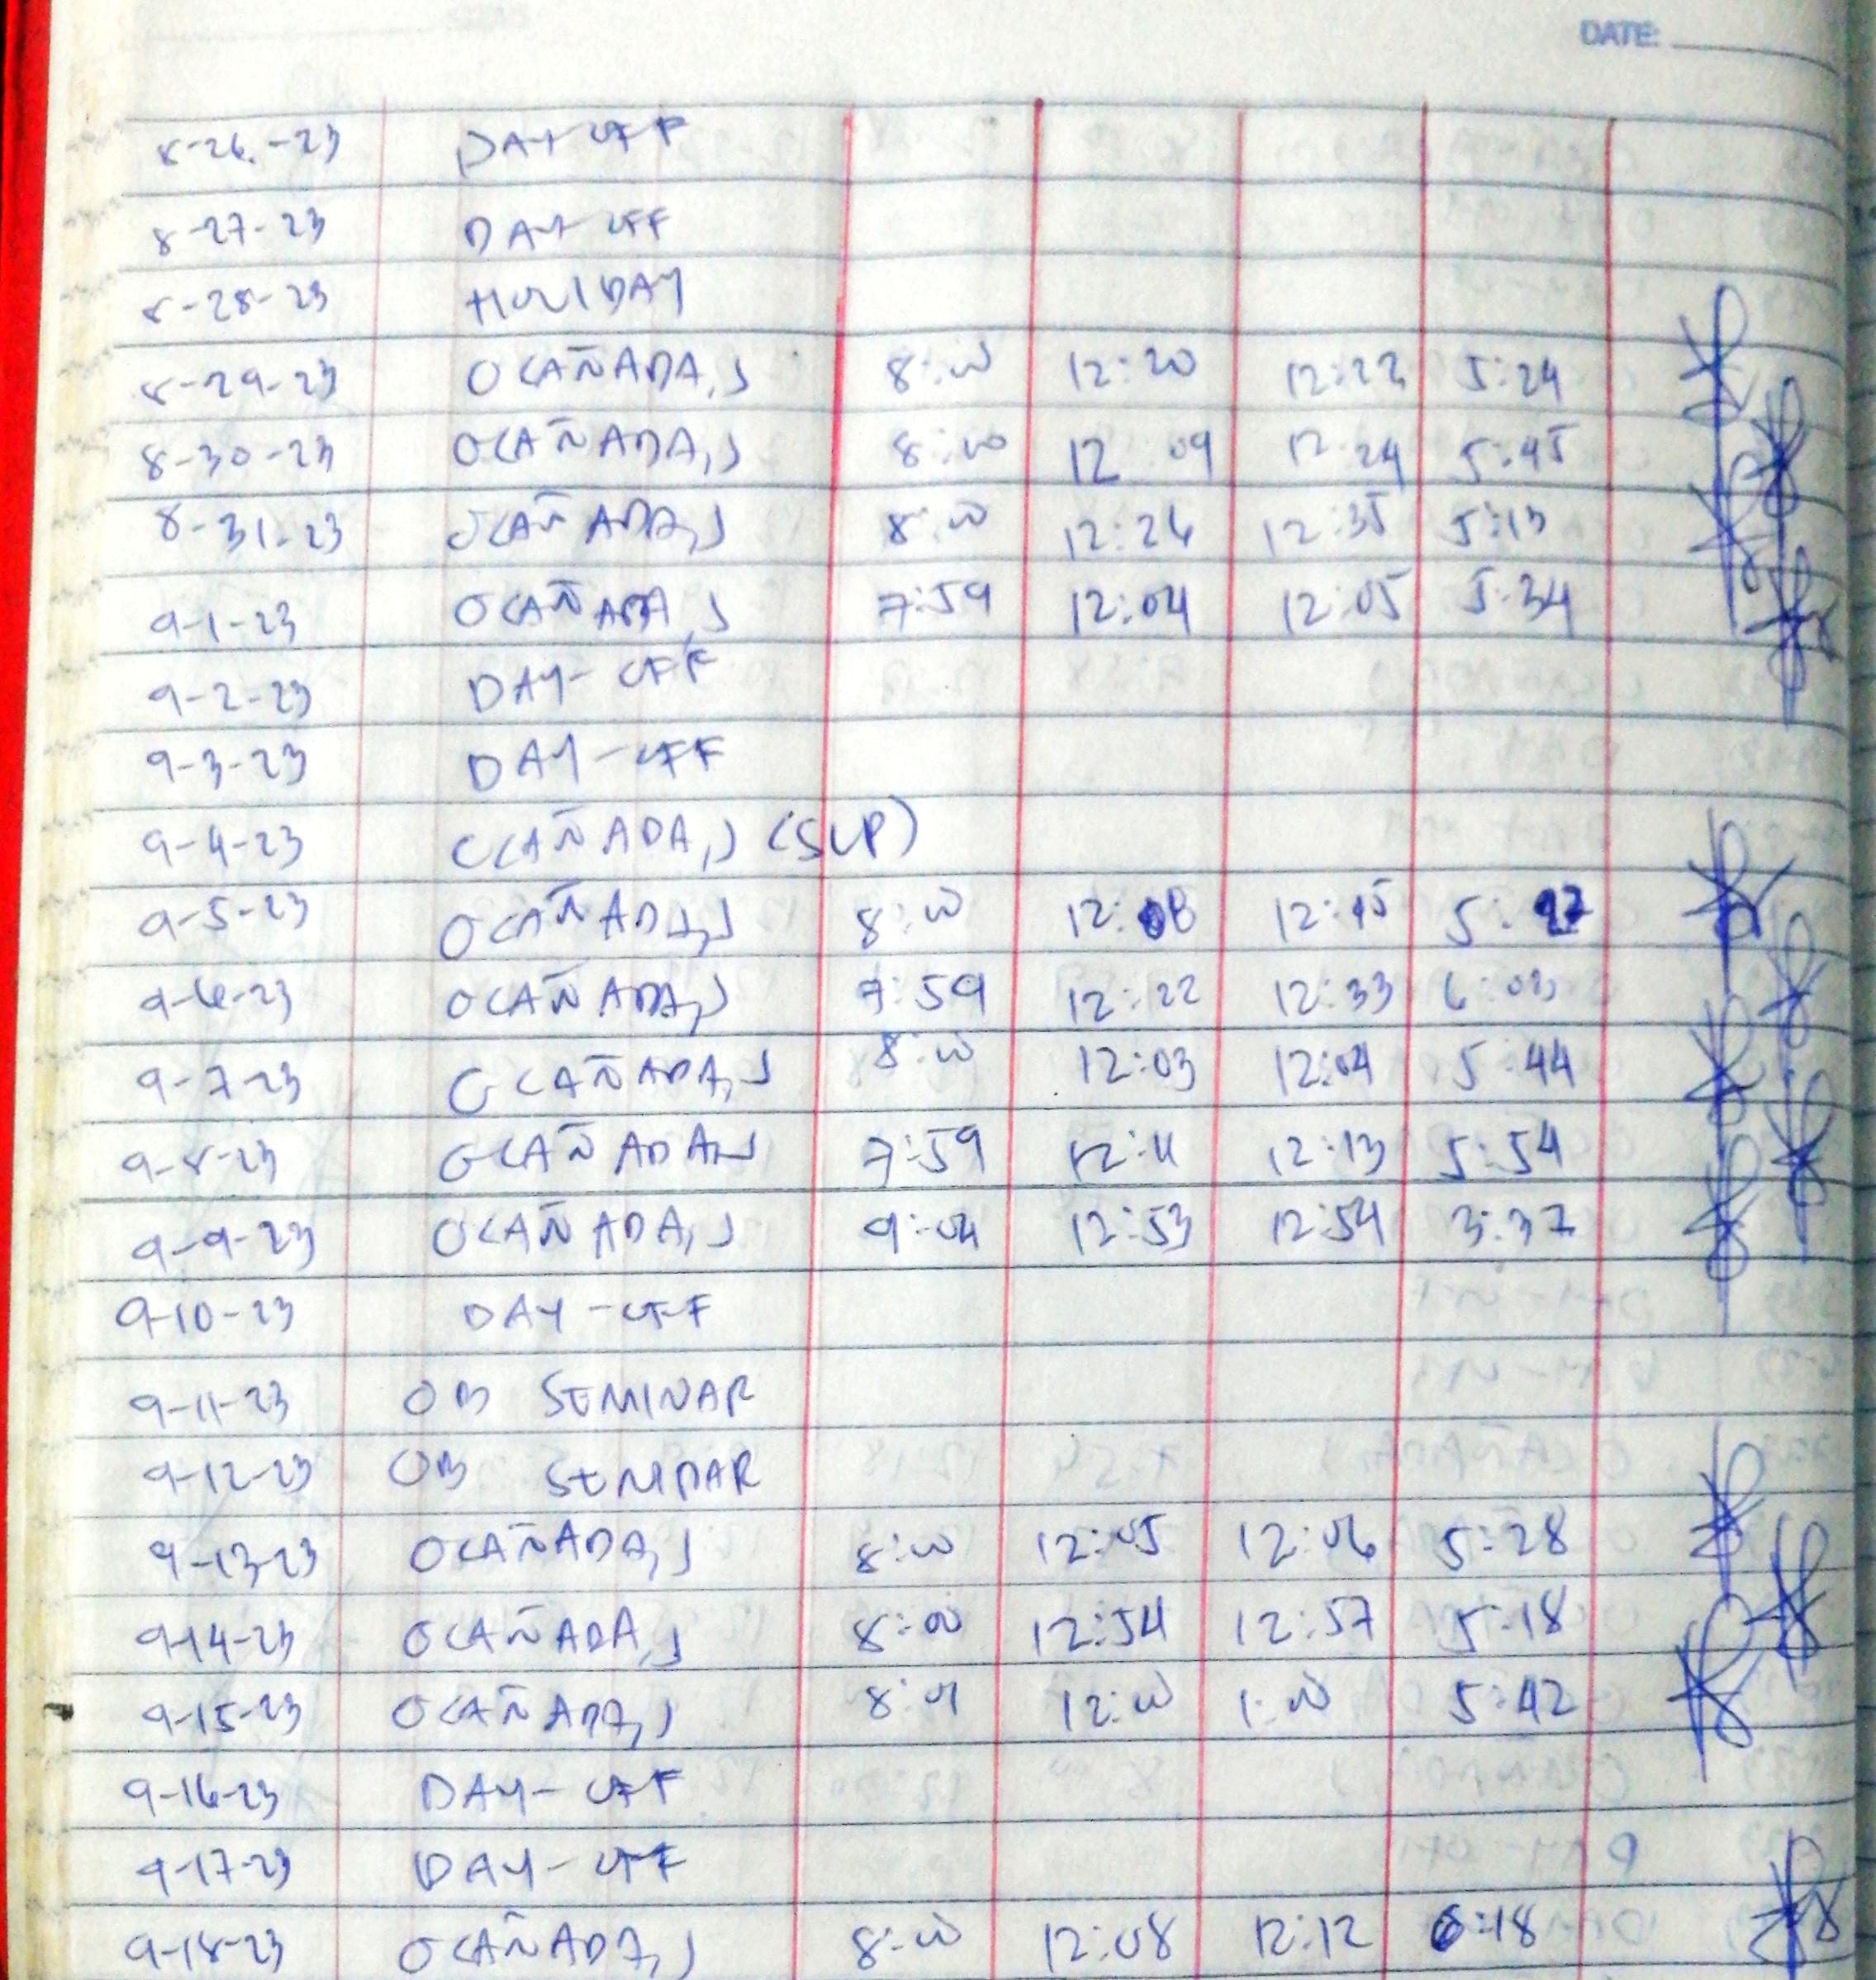 DATE:
8-26-23 DAY OFF
8-27-23 DAY OFF
8-28-23 HOLIDAY
8-29-23 OCAÑADA, J 8:00 12:20 12:22 5:24
8-30-23 OCAÑADA, J 8:00 12:09 12:24 5:45
8-31-23 OCAÑADA, J 8:00 12:26 12:35 5:13
9-1-23 OCAÑADA, J 7:59 12:04 12:05 5:34
9-2-23 DAY-OFF
9-3-23 DAY-OFF
9-4-23 OCAÑADA, J (SLP)
9-5-23 OCAÑADA, J 8:00 12:08 12:15
9-6-23 OCAÑADA, J 7:59 12:22 12:33 6:03
9-7-23 OCAÑADA, J 8:00 12:03 12:04 5:44
9-8-23 OCAÑADA, J 7:59 12:11 12:13 5:54
9-9-23 OCAÑADA, J 9:04 12:53 12:54 3:37
9-10-23 DAY-OFF
9-11-23 OB SEMINAR
9-12-23 OB SEMINAR
9-13-23 OCAÑADA, J 8:00 12:05 12:06 5:28
9-14-23 OCAÑADA, J 8:00 12:54 12:57 5:18
9-15-23 OCAÑADA, J 8:01 12:00 1:00 5:42
9-16-23 DAY-OFF
9-17-23 DAY-OFF
9-18-23 OCAÑADA, J 8:00 12:08 12:12 6:18